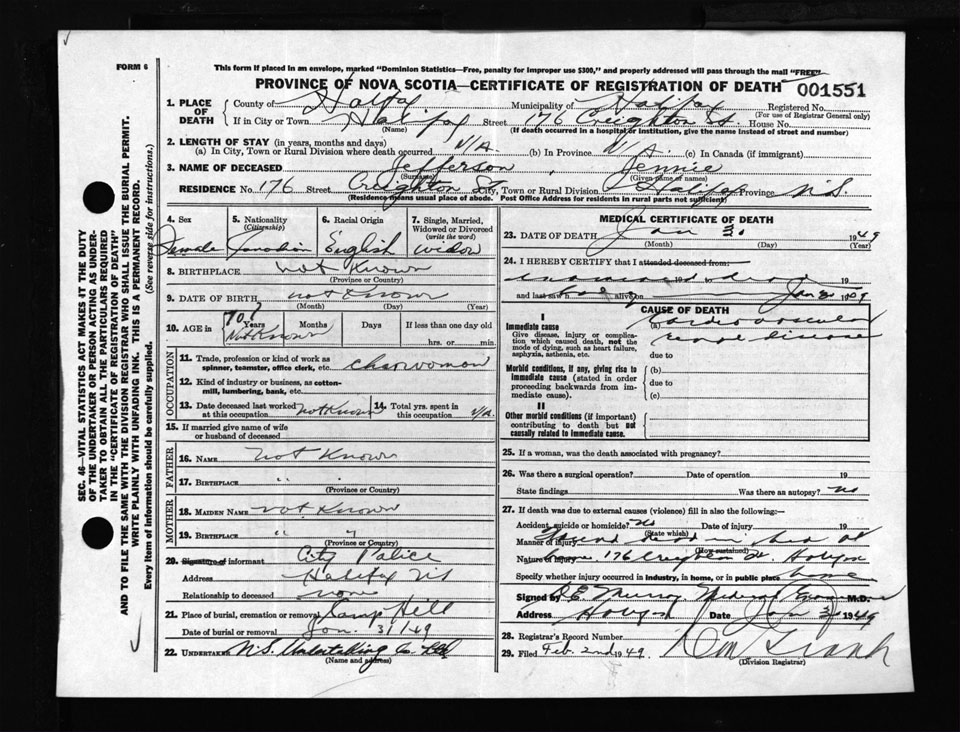 FORM 6
This form if placed in an envelope, marked "Dominion Statistics—Free, penalty for improper use $300," and properly addressed will pass through the mail "FREE"
PROVINCE OF NOVA SCOTIA—CERTIFICATE OF REGISTRATION OF DEATH 001551
1. PLACE OF DEATH
County of Halifax Municipality of Halifax Registered No.
(For use of Registrar General only)
If in City or Town Halifax Street 176 Creighton St. House No.
(Name) (If death occurred in a hospital or institution, give the name instead of street and number)
2. LENGTH OF STAY (in years, months and days)
(a) In City, Town or Rural Division where death occurred N/A. (b) In Province N/A. (c) In Canada (if immigrant)
3. NAME OF DECEASED Jefferson, Jennie
(Surname) (Given name or names)
RESIDENCE No. 176 Street Creighton St City, Town or Rural Division Halifax Province N.S.
(Residence means usual place of abode. Post Office Address for residents in rural parts not sufficient)
4. Sex 5. Nationality (Citizenship) 6. Racial Origin 7. Single, Married, Widowed or Divorced (write the word)
Female Canadian English widow
8. BIRTHPLACE not Known
(Province or Country)
9. DATE OF BIRTH not Known
(Month) (Day) (Year)
10. AGE in 70? Years Months Days If less than one day old
Not Known hrs. or min.
OCCUPATION
11. Trade, profession or kind of work as spinner, teamster, office clerk, etc. charwoman
12. Kind of industry or business, as cotton-mill, lumbering, bank, etc.
13. Date deceased last worked at this occupation not Known 14. Total yrs. spent in this occupation N/A.
15. If married give name of wife or husband of deceased
FATHER
16. NAME not Known
17. BIRTHPLACE " "
(Province or Country)
MOTHER
18. MAIDEN NAME not Known
19. BIRTHPLACE " "
(Province or Country)
20. Signature of informant City Police
Address Halifax NS
Relationship to deceased none
21. Place of burial, cremation or removal Camp Hill
Date of burial or removal Jan. 31/49
22. UNDERTAKER N.S. Undertaking Co Ltd
(Name and address)
MEDICAL CERTIFICATE OF DEATH
23. DATE OF DEATH Jan 1949
(Month) (Day) (Year)
24. I HEREBY CERTIFY that I attended deceased from
19
and last saw h alive on Jan 19
CAUSE OF DEATH
I
Immediate cause
Give disease, injury or complication which caused death, not the mode of dying, such as heart failure, asphyxia, asthenia, etc.
(a) Cardiovascular
renal disease
due to
Morbid conditions, if any, giving rise to immediate cause (stated in order proceeding backwards from immediate cause).
(b)
due to
(c)
II
Other morbid conditions (if important) contributing to death but not causally related to immediate cause.
25. If a woman, was the death associated with pregnancy?
26. Was there a surgical operation? Date of operation 19
State findings Was there an autopsy? no
27. If death was due to external causes (violence) fill in also the following:—
Accident, suicide or homicide? No Date of injury 19
(State which)
Manner of injury
(How sustained)
Nature of injury home 176 Creighton St.
Specify whether injury occurred in industry, in home, or in public place home
Signed by Murray Medical M.D.
Address Date Jan 1949
28. Registrar's Record Number
29. Filed Feb. 2nd 1949.
(Division Registrar)
SEC. 46—VITAL STATISTICS ACT MAKES IT THE DUTY
OF THE UNDERTAKER OR PERSON ACTING AS UNDER-
TAKER TO OBTAIN ALL THE PARTICULARS REQUIRED
IN THE "CERTIFICATE OF REGISTRATION OF DEATH"
AND TO FILE THE SAME WITH THE DIVISION REGISTRAR WHO SHALL ISSUE THE BURIAL PERMIT.
WRITE PLAINLY WITH UNFADING INK. THIS IS A PERMANENT RECORD.
Every item of information should be carefully supplied. (See reverse side for instructions.)